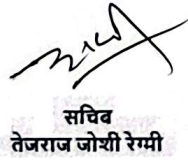 सचिव
तेजराज जोशी रेग्मी